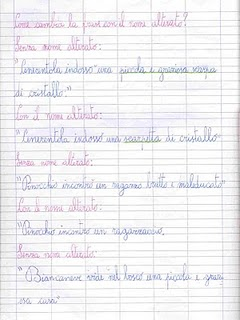 Come cambia la frase con il nome alterato?
Senza nome alterato:
"Cenerentola indossò una piccola e graziosa scarpa
di cristallo."
Con il nome alterato:
"Cenerentola indossò una scarpetta di cristallo
Senza nome alterato:
"Pinocchio incontrò un ragazzo brutto e maleducato"
Con il nome alterato:
"Pinocchio incontrò un ragazzaccio.
Senza nome alterato:
"Biancaneve vide nel bosco una piccola e grazio
sa casa"